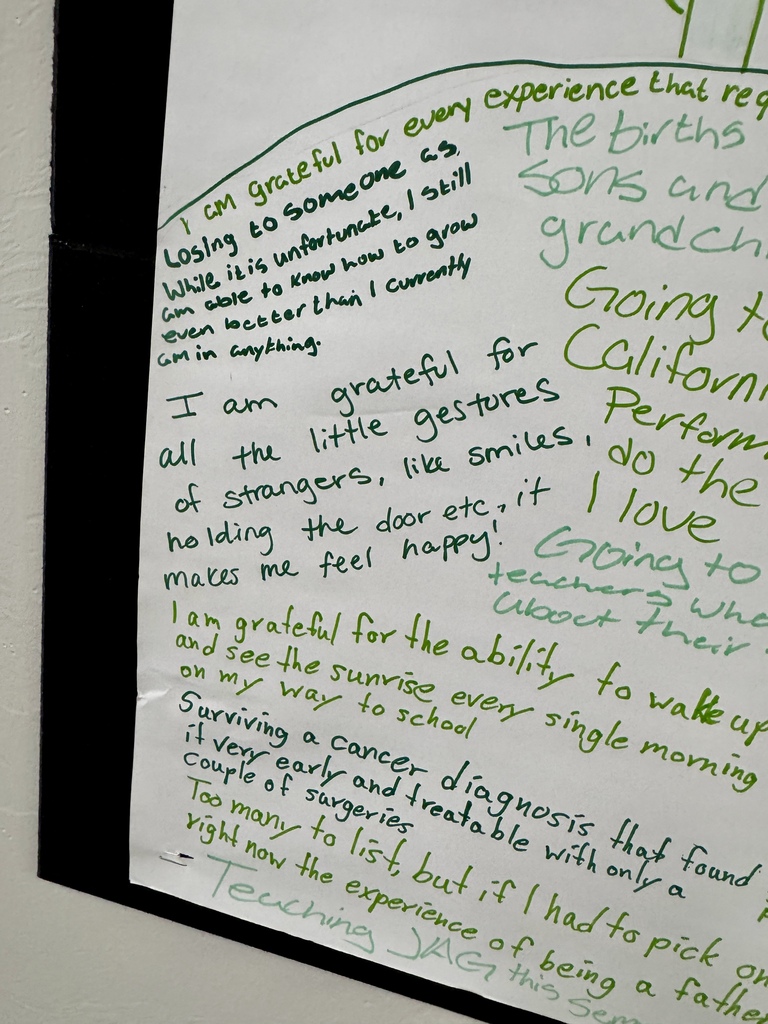 I am grateful for every experience that
Losing to someone as
While it is unfortunate, I still
am able to know how to grow
even better than I currently
am in anything.
The births
sons and
Going
I am grateful for
all the little gestures
of strangers, like smiles,
holding the door etc, it
makes me feel happy!
do the
I love
Going to
teachers
about their
I am grateful for the ability to wake up
and see the sunrise every single morning
on my way to school
Surviving a cancer diagnosis that found
it very early and treatable with only a
couple of surgeries
Too many to list, but if I had to pick
right now the experience of being a father
Teaching JAG this